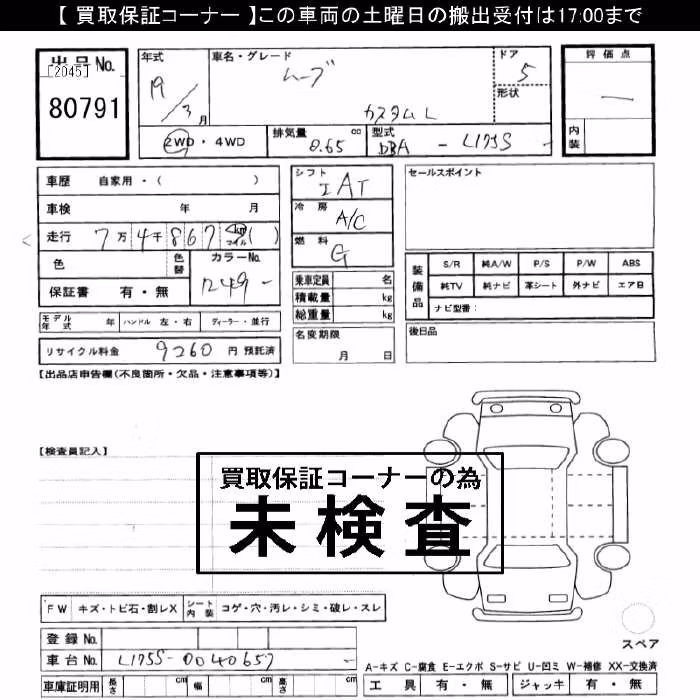 【 買取保証コーナー 】この車両の土曜日の搬出受付は17:00まで
出品No.
[2045]
80791
年式
19/3月
車名・グレード
ムーブ
カスタムL
ドア
5
形状
評価点
—
内装
2WD・4WD
排気量 0.65 cc
型式 DBA - L175S -
車歴 自家用・( )
車検 年 月
走行 7万4千867 km マイル ( )
色
色替
カラーNo.
1249 -
保証書 有・無
シフト
IAT
冷房
A/C
燃料
G
セールスポイント
乗車定員 名
積載量 kg
総重量 kg
装備品
S/R 純A/W P/S P/W ABS
純TV 純ナビ 革シート 外ナビ エアB
ナビ型番:
モデル年式 年 ハンドル 左・右 ディーラー・並行
リサイクル料金 9260 円 預託済
名変期限
月 日
後日品
【出品店申告欄(不良箇所・欠品・注意事項等)】
【検査員記入】
買取保証コーナーの為
未検査
FW キズ・トビ石・割レX
シート内装 コゲ・穴・汚レ・シミ・破レ・スレ
登録No.
車台No. L175S-0040657 -
車庫証明用 長さ cm 幅 cm 高さ cm
スペア
A-キズ C-腐食 E-エクボ S-サビ U-凹ミ W-補修 XX-交換済
工具 有・無 ジャッキ 有・無